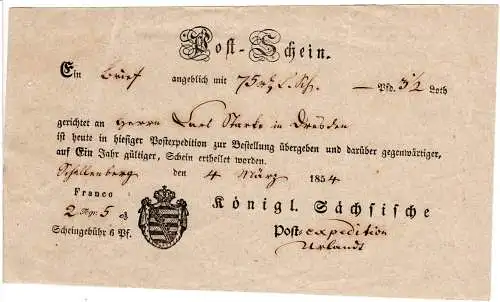 Post-Schein.
Ein Brief angeblich mit 75 — Pfd. 3½ Loth
gerichtet an Herrn Carl Starke in Dresden
ist heute in hiesiger Postexpedition zur Bestellung übergeben und darüber gegenwärtiger,
auf Ein Jahr gültiger, Schein ertheilet worden.
Schellenberg den 4 März 1854
Franco
2 Ngr. 5 ₰
Scheingebühr 6 Pf.
Königl. Sächsische
Postexpedition
Urlandt